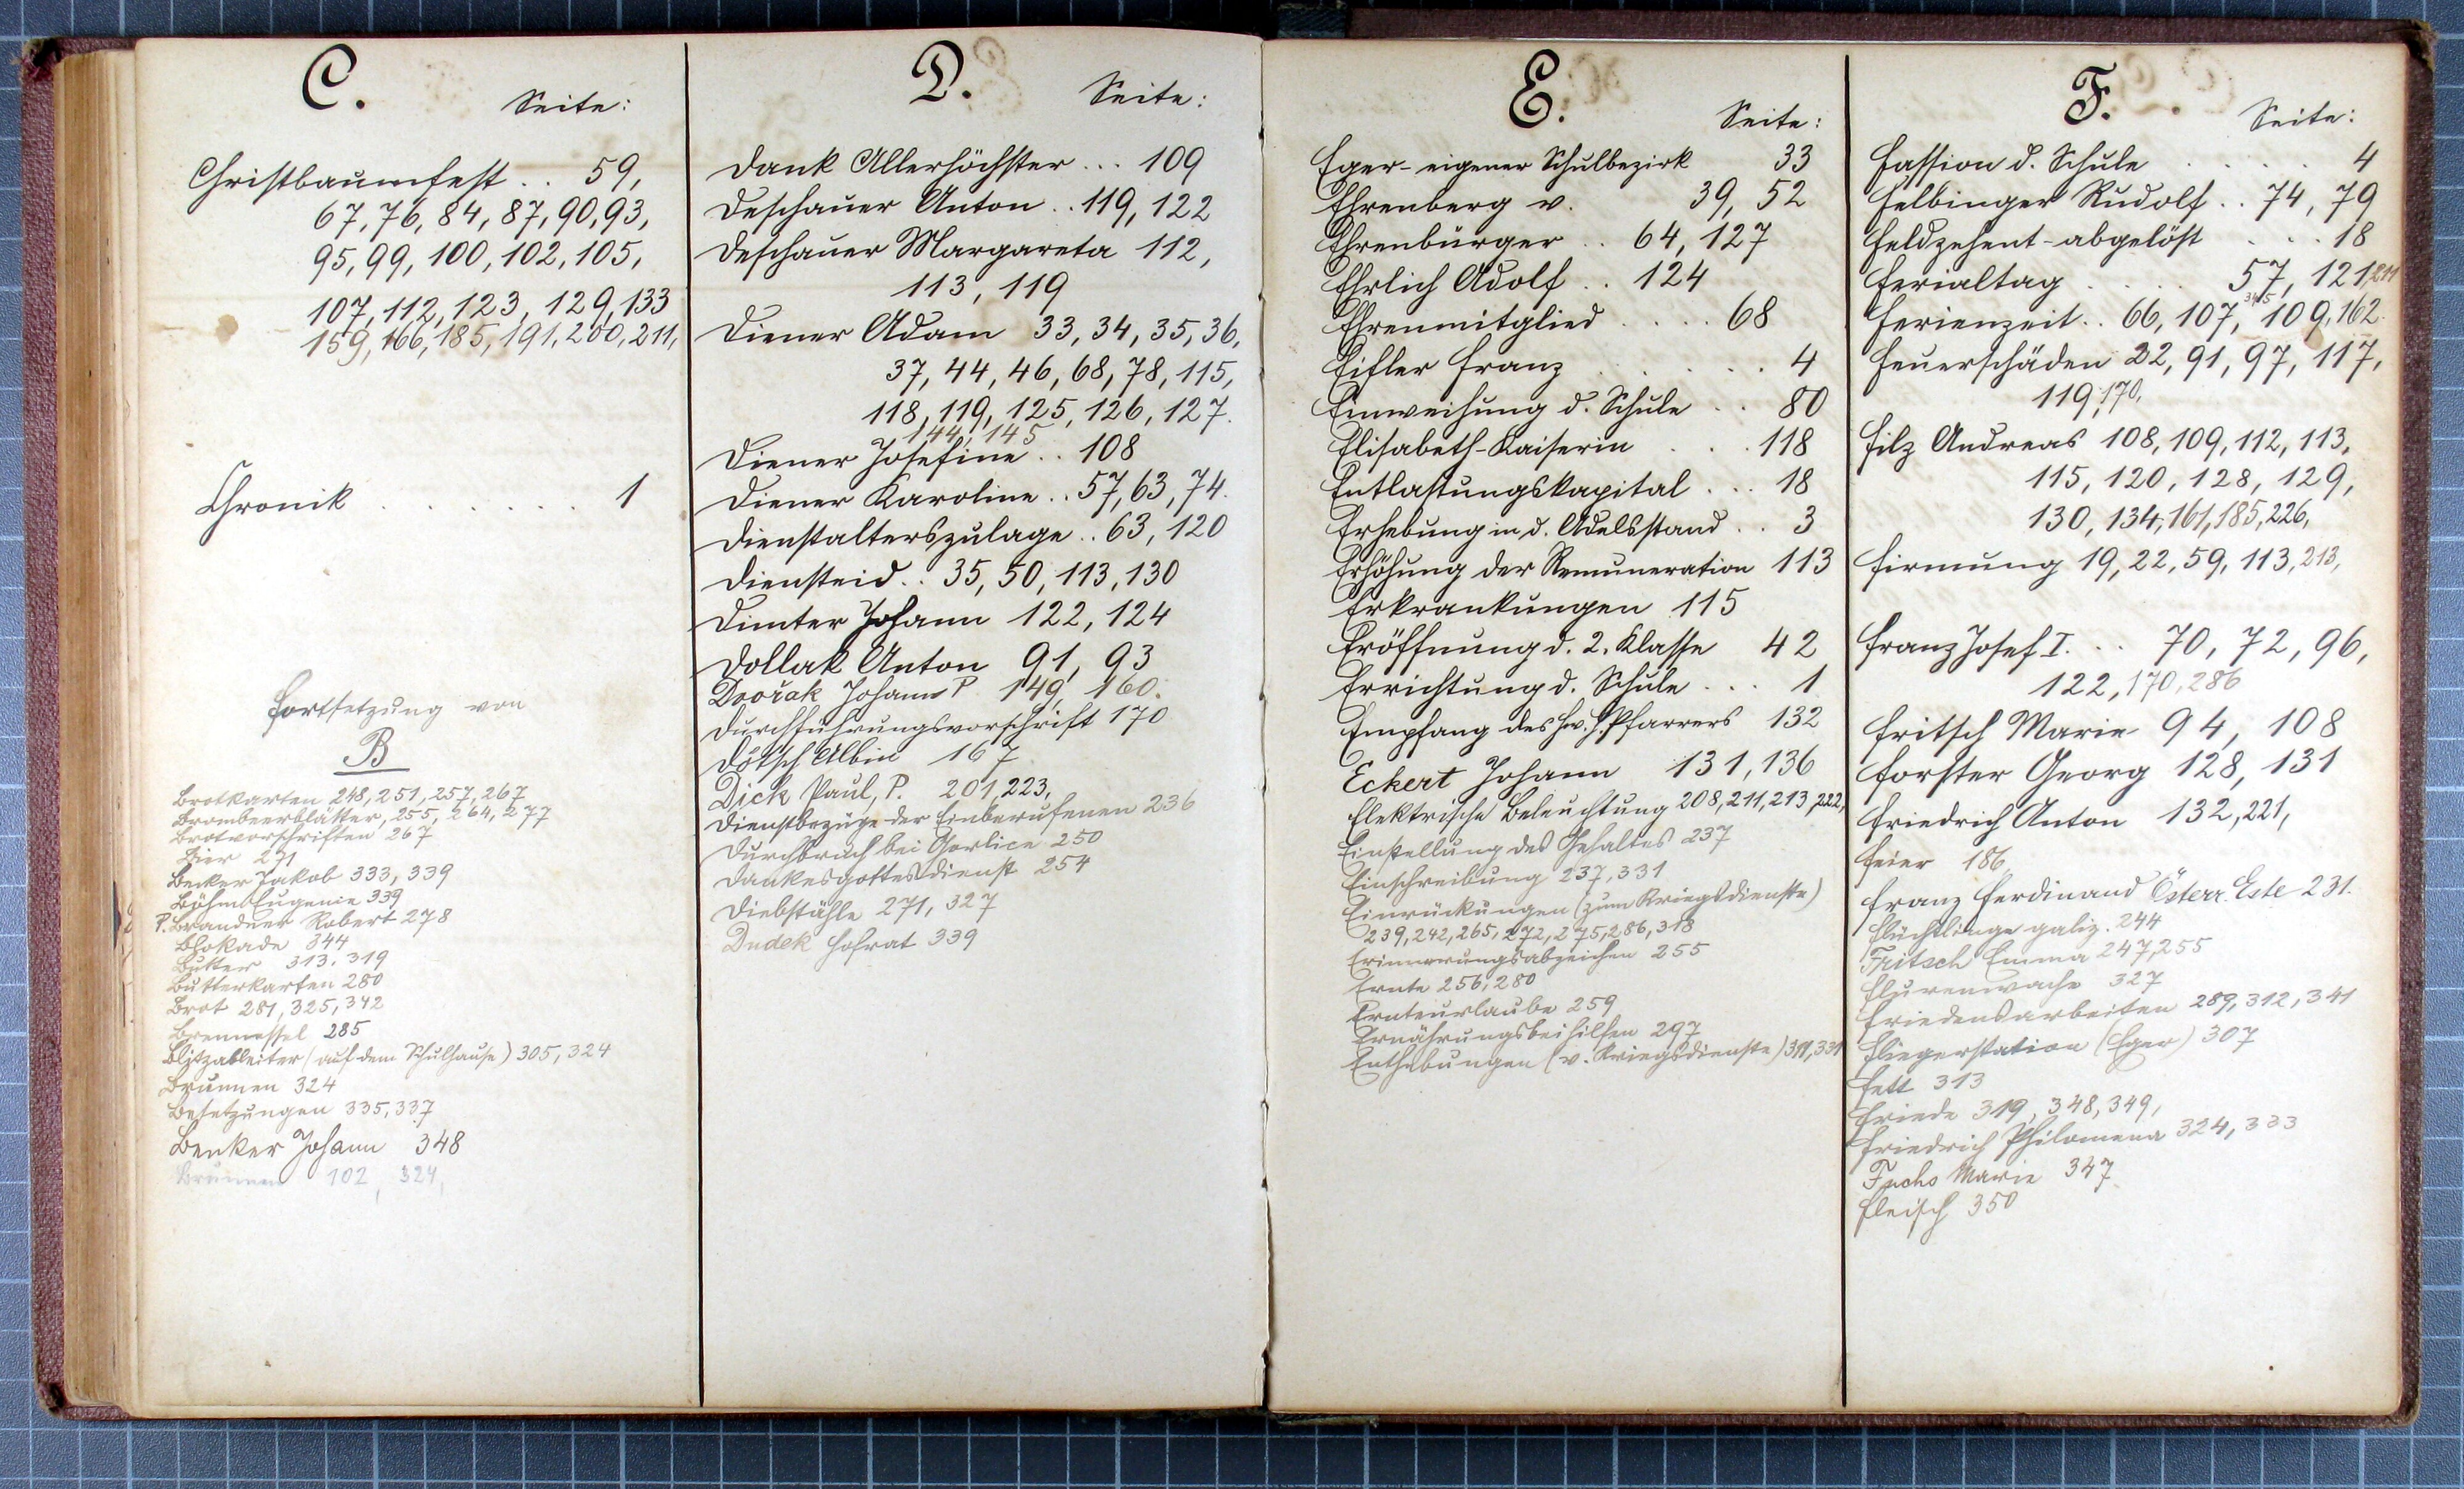 C.
Seite:
Christbaumfest . . 59,
67, 76, 84, 87, 90, 93,
95, 99, 100, 102, 105,
107, 112, 123, 129, 133
159, 166, 185, 191, 200, 211,
Chronik . . . . . . . 1
Fortsetzung von
B
Brotkarten 248, 251, 257, 267
Brombeerblätter, 255, 264, 277
Brotvorschriften 267
Bier 271
Becker Jakob 333, 339
Böhm Eugenie 339
P. Brandner Robert 278
Blokade 344
Butter 313, 319
Butterkarten 280
Brot 281, 325, 342
Brennessel 285
Blitzableiter (auf dem Schulhause) 305, 324
Brunnen 324
Besetzungen 335, 337
Benker Johann 348
Brunnen 102, 324,
D.
Seite:
Dank Allerhöchster . . . 109
Deschauer Anton . . 119, 122
Deschauer Margareta 112,
113, 119
Diener Adam 33, 34, 35, 36,
37, 44, 46, 68, 78, 115,
118, 119, 125, 126, 127.
144, 145
Diener Josefine . . 108
Diener Karoline . . 57, 63, 74.
Dienstalterszulage . . 63, 120
Diensteid . . 35, 50, 113, 130
Dimter Johann 122, 124
Dollak Anton 91, 93
Dvořak Johann P. 149, 160.
Durchführungsvorschrift 170
Dötsch Albin 167
Dick Paul, P. 201, 223,
Dienstbezüge der Einberufenen 236
Durchbruch bei Gorlice 250
Dankesgottesdienst 254
Diebstähle 271, 327
Dudek Hofrat 339
E.
Seite:
Eger - eigener Schulbezirk 33
Ehrenberg v. 39, 52
Ehrenbürger . . 64, 127
Ehrlich Adolf . . 124
Ehrenmitglied . . . . 68
Eisler Franz . . . . . . 4
Einweihung d. Schule . . 80
Elisabeth-Kaiserin . . . 118
Entlastungskapital . . . 18
Erhebung in d. Adelsstand . . 3
Erhöhung der Remuneration 113
Erkrankungen 115
Eröffnung d. 2. Klasse 42
Errichtung d. Schule . . . 1
Empfang des hw. H. Pfarrers 132
Eckert Johann 131, 136
Elektrische Beleuchtung 208, 211, 213, 222,
Einstellung des Gehaltes 237
Einschreibung 237, 331
Einrückungen (zum Kriegsdienste)
239, 242, 265, 272, 275, 286, 318
Erinnerungsabzeichen 255
Ernte 256, 280
Ernteurlaube 259
Ernährungsbeihilfen 297
Enthebungen (v. Kriegsdienste) 311, 331
F.
Seite:
Fassion d. Schule . . . . . 4
Felbinger Rudolf . . 74, 79
Feldzehent-abgelöst . . . 18
Ferialtag . . . . . 57, 121, 211
345
Ferienzeit . . 66, 107, 109, 162.
Feuerschäden 32, 91, 97, 117,
119, 170,
Filz Andreas 108, 109, 112, 113,
115, 120, 128, 129,
130, 134, 161, 185, 226,
Firmung 19, 22, 59, 113, 213,
Franz Josef I. . . . 70, 72, 96,
122, 170, 286
Fritsch Marie 94, 108
Forster Georg 128, 131
Friedrich Anton 132, 221,
Feier 186
Franz Ferdinand Österr. Este 231.
Flüchtlinge galiz. 244
Fritsch Emma 247, 255
Flurenwache 327
Friedensarbeiten 289, 312, 341
Fliegerstation (Eger) 307
Fett 313
Friede 319, 348, 349,
Friedrich Philomena 324, 333
Fuchs Marie 347
Fleisch 350